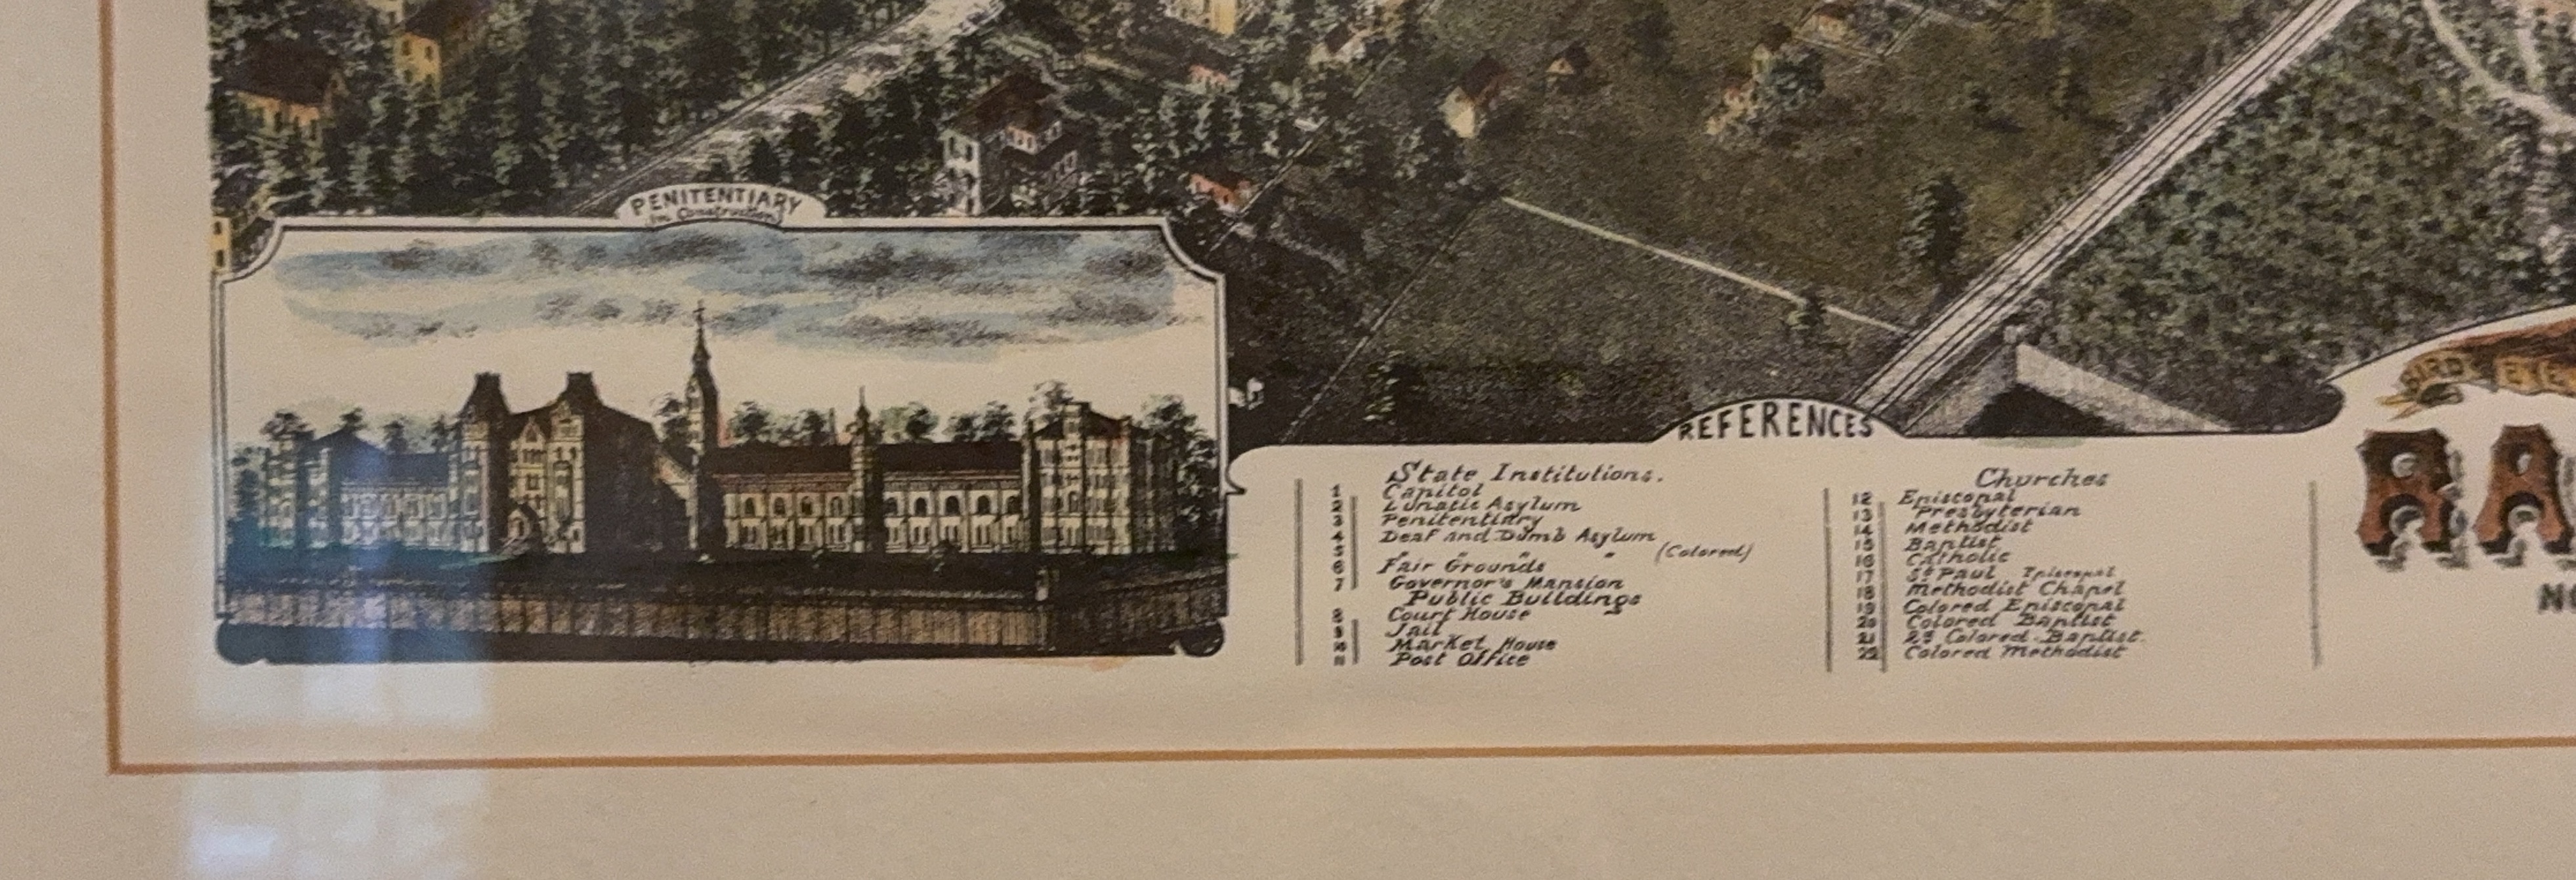 PENITENTIARY
(In Construction)
REFERENCES
State Institutions.
1 Capitol
2 Lunatic Asylum
3 Penitentiary
4 Deaf and Dumb Asylum
5 " " " " (Colored)
6 Fair Grounds
7 Governor's Mansion
Public Buildings
8 Court House
9 Jail
10 Market House
11 Post Office
Churches
12 Episcopal
13 Presbyterian
14 Methodist
15 Baptist
16 Catholic
17 St Paul Episcopal
18 Methodist Chapel
19 Colored Episcopal
20 Colored Baptist
21 2d Colored Baptist.
22 Colored Methodist
BIRDS EYE
RA
N